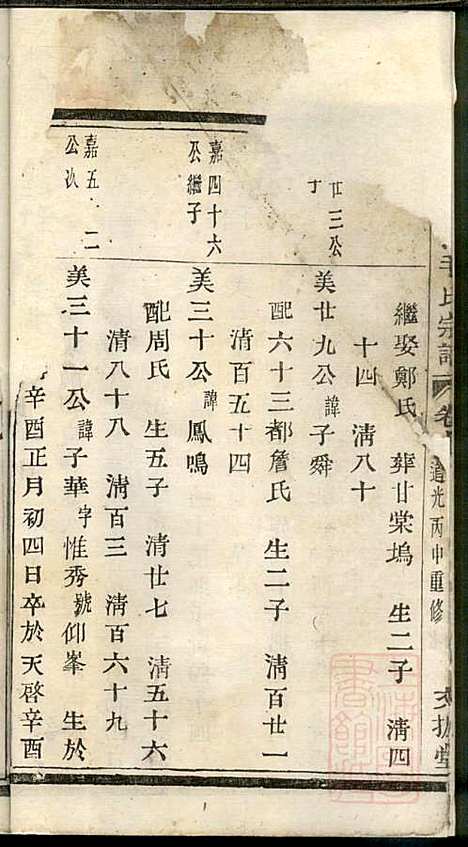 氏宗譜
卷
道光丙申重修
繼娶鄭氏 葬廿棠塢 生二子 清四
十四 清八十
廿三公
子
美廿九公諱子舜
配六十三都詹氏 生二子 清百廿一
清百五十四
嘉四十六
公繼子
美三十公諱鳳鳴
配周氏 生五子 清廿七 清五十六
清八十八 清百三 清百六十九
嘉五 二
公次
美三十一公諱子華字惟秀號仰峯 生於
辛酉正月初四日卒於天啓辛酉